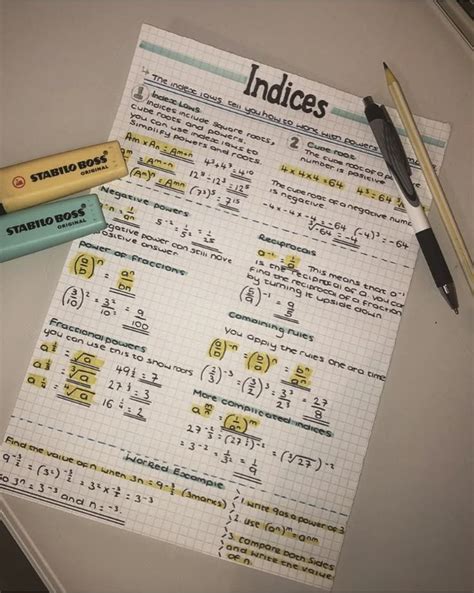 Indices
The index laws tell you how to work with powers
1 Index Laws
Indices include square roots,
cube roots and powers.
you can use index laws to
simplify powers and roots.
Am x An = Am+n
4³ + 4
12⁻⁸ = 12
(Aᵐ)ⁿ = Amn
(7²)³ =
Negative powers
5⁻² = 1/5² = 1/25
negative power can still have
positive answer.
Power of fractions
(a/b)ⁿ = aⁿ/bⁿ
(3/10)² = 3²/10² = 9/100
Fractional powers
you can use this to show roots
a^½ = √a
a^⅓ = ³√a
a^¼ = ⁴√a
49^½ = 7
27^⅓ = 3
16^¼ = 2
2 Cube root
The cube root of a
number is positive
4 x 4 x 4 = 64
The cube root of a negative num
is negative
-4 x -4 x -4 = -64
(-4)³ = -64
³√-64 = -4
Reciprocals
a⁻¹ = 1/a This means that a⁻¹
is the reciprocal of a. you can
find the reciprocal of a fraction
by turning it upside down
(5/9)⁻¹ = 9/5
Combining rules
you apply the rules one at a time
(a/b)⁻ⁿ = (b/a)ⁿ = bⁿ/aⁿ
(2/3)⁻³ = (3/2)³ = 3³/2³ = 27/8
More complicated indices
27^-⅔ = (27^⅓)⁻² = (³√27)⁻²
= 3⁻² = 1/3² = 1/9
Worked Example
Find the value of n when 3n = 9^-3/2 (3marks)
9^-3/2 = (3²)^-3/2
= 3⁻³
So 3n = 3⁻³ and n = -3.
1. Write 9 as a power of 3
2. Use (aⁿ)ᵐ = anm
3. Compare both sides
and write the value
of n.
STABILO BOSS
ORIGINAL
STABILO BOSS
ORIGINAL